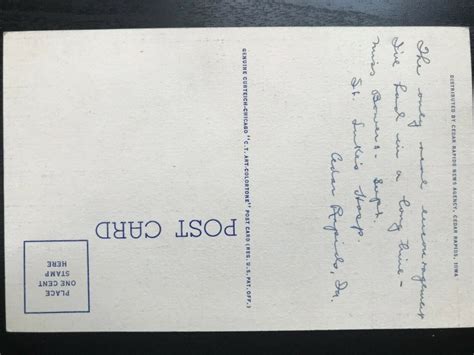 DISTRIBUTED BY CEDAR RAPIDS NEWS AGENCY, CEDAR RAPIDS, IOWA
The only real encouragement
I've had in a long time -
Miss Bowers - Supt.
St. Luke's Hosp
Cedar Rapids, Ia.
GENUINE CURTEICH-CHICAGO "C.T. ART-COLORTONE" POST CARD (REG. U.S. PAT. OFF.)
POST CARD
PLACE
ONE CENT
STAMP
HERE